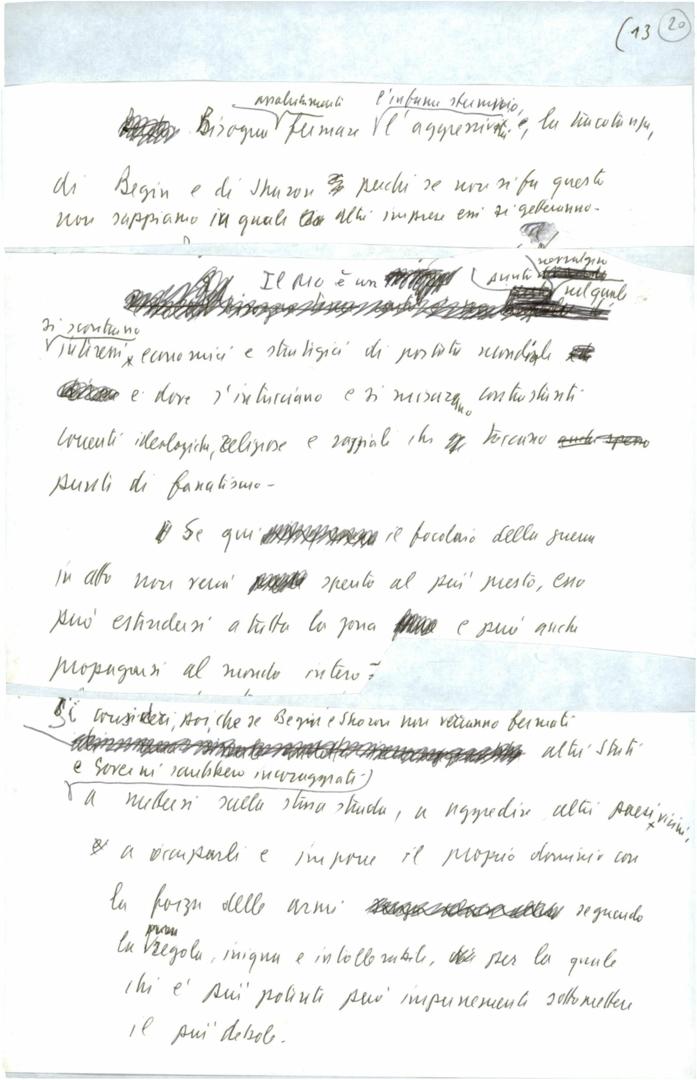 (13 20
assolutamente l'infame sterminio,
Bisogna fermare l'aggressività, la tracotanza,
di Begin e di Sharon perché se non si fa questo
non sappiamo in quale altre imprese essi si getteranno.
nevralgico
Il MO è un punto nel quale
si scontrano
interessi economici e strategici di portata mondiale
e dove s'intrecciano e si misurano contrastanti
correnti ideologiche, religiose e razziali che toccano anche spesso
punte di fanatismo.
Se qui il focolaio della guerra
in atto non verrà spento al più presto, esso
può estendersi a tutta la zona e può anche
propagarsi al mondo intero.
Si consideri, poi, che se Begin e Sharon non verranno fermati
altri Stati
e Governi sarebbero incoraggiati
a mettersi sulla stessa strada, a aggredire altri paesi vicini,
a occuparli e imporre il proprio dominio con
la forza delle armi seguendo
la regola, iniqua e intollerabile, per la quale
chi è più potente può impunemente sottomettere
il più debole.